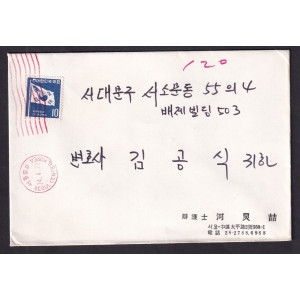 120
서대문구 서소문동 55의 4
배제빌딩 503
변호사 김 공 식 귀하
辯護士 河 炅 喆
서울·中區太平路2街360-1
電話
10
SEOUL